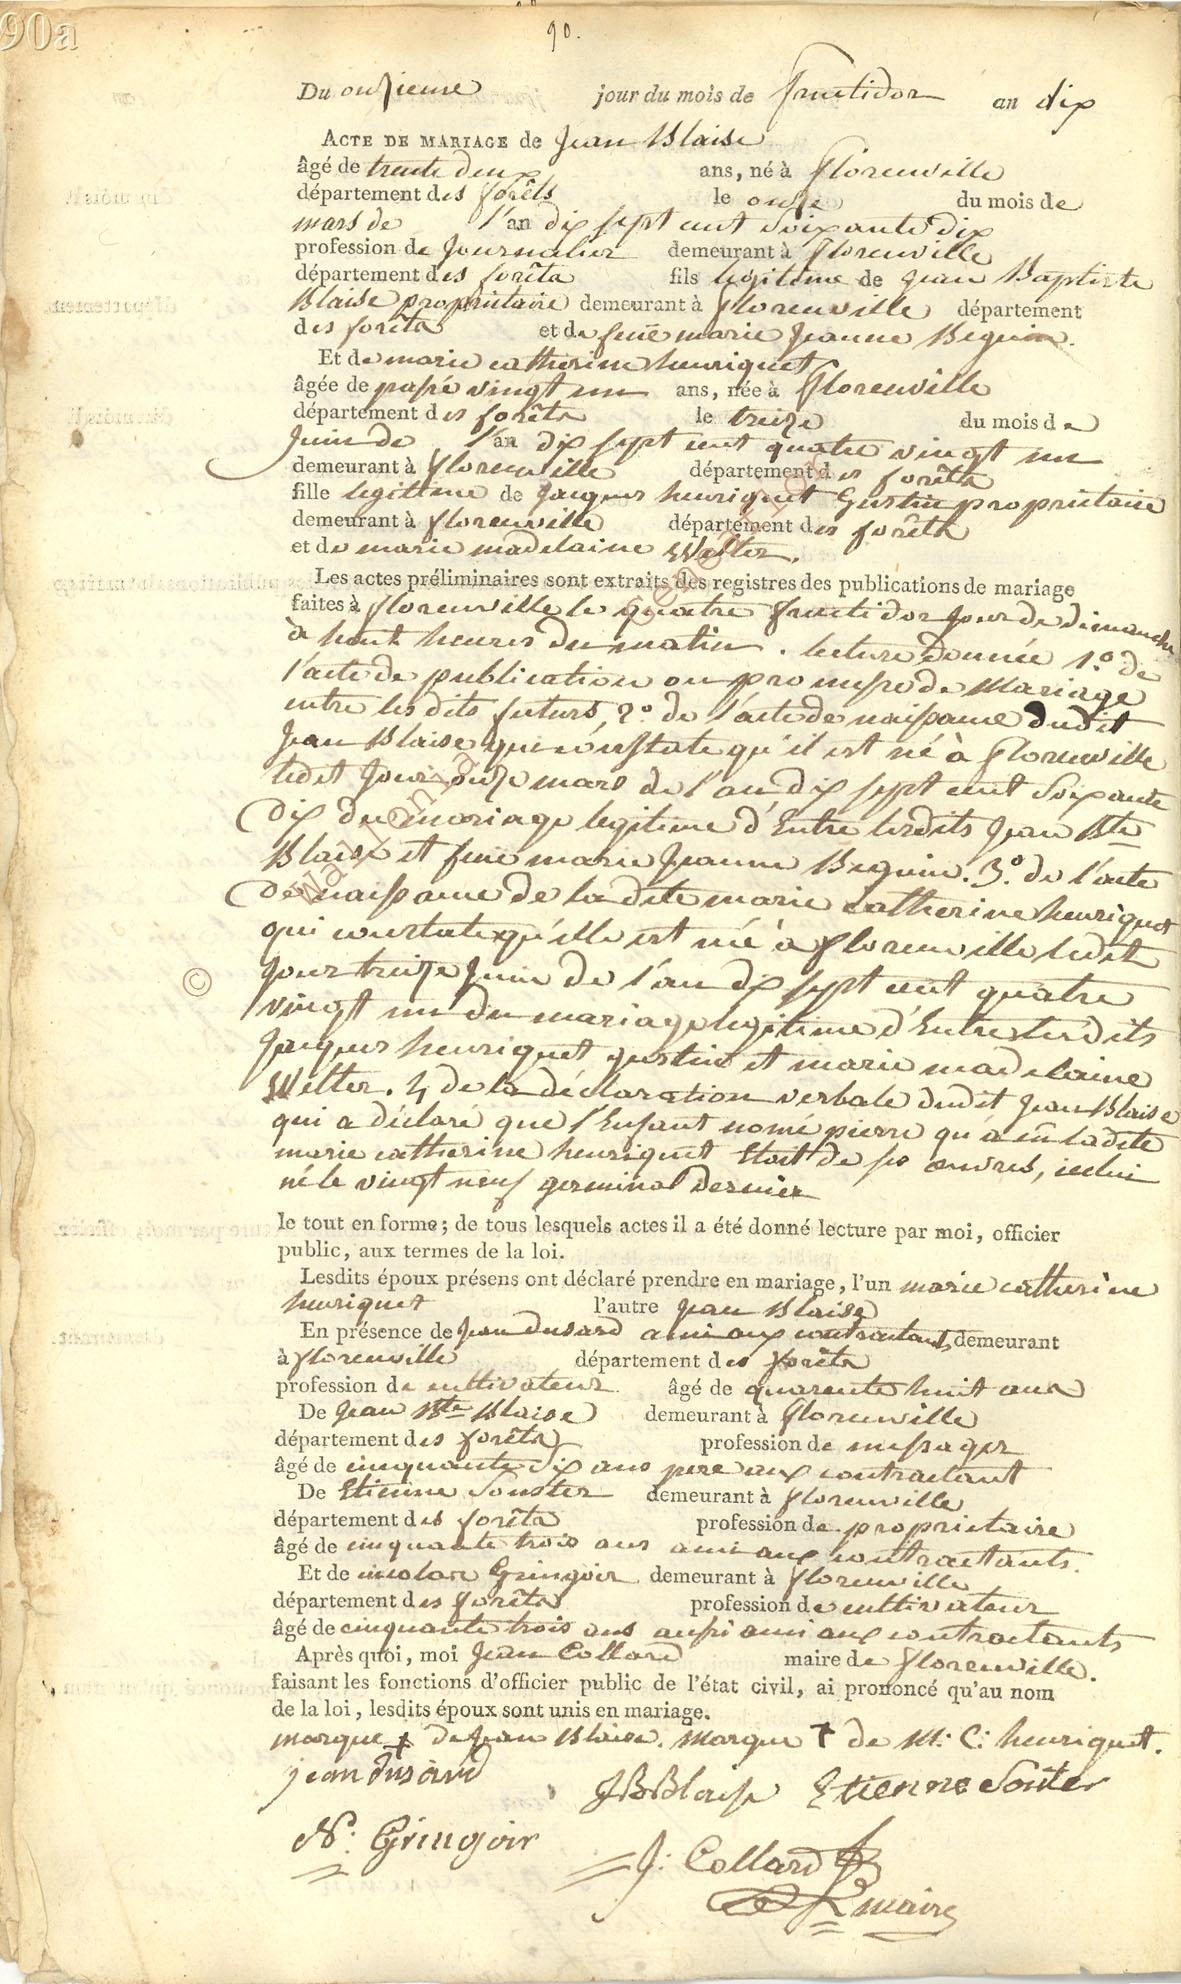 90a
90.
Du onzieme jour du mois de fructidor an dix
ACTE DE MARIAGE de Jean Blaise
âgé de trente deux ans, né à florenville
département des forêts le onze du mois de
mars de l'an dix sept cent soixante dix
profession de Journalier demeurant à florenville
département des forêts fils legitime de jean Baptiste
Blaise propriétaire demeurant à florenville département
des forêts et de feüe marie jeanne Beguin.
Et de marie catherine henriquet
âgée de passé vingt un ans, née à florenville
département des forêts le treize du mois de
Juin de l'an dix sept cent quatre vingt un
demeurant à florenville département des forêts
fille legittime de jacques henriquet Gustin propriétaire
demeurant à florenville département des forêts
et de marie madelaine Welter.
Les actes préliminaires sont extraits des registres des publications de mariage
faites à florenville le quatre fructidor jour de dimanche
à huit heures du matin. lecture donnée 1.º de
l'acte de publication ou promesse de Mariage
entre les dits futurs, 2.º de l'acte de naissance dudit
Jean Blaise qui constate qu'il est né à florenville
ledit Jour onze mars de l'an dix sept cent soixante
dix du mariage legitime d'Entre lesdits Jean Bte
Blaise et feüe marie Jeanne Beguin. 3.º de l'acte
de naissance de la dite marie catherine henriquet
qui constate qu'elle est née à florenville ledit
jour treize Juin de l'an dix sept cent quatre
vingt un du mariage legitime d'Entre lesdits
Jacques henriquet gustin et marie madelaine
Welter. 4 de la déclaration verbale dudit Jean Blaise
qui a déclaré que l'Enfant nomé pierre qu'a eü ladite
marie catherine henriquet Etoit de ses œuvres, icelui
né le vingt neuf germinal dernier
le tout en forme; de tous lesquels actes il a été donné lecture par moi, officier
public, aux termes de la loi.
Lesdits époux présens ont déclaré prendre en mariage, l'un marie catherine
henriquet l'autre jean Blaise
En présence de Jean dusard ami aux contractants demeurant
à florenville département des forêts
profession de cultivateur âgé de quarente huit ans
De Jean Bte Blaise demeurant à florenville
département des forêts profession de messager
âgé de cinquante dix ans pere aux contractant
De Etienne Souster demeurant à florenville
département des forêts profession de propriétaire
âgé de cinquante trois ans ami aux contractants.
Et de nicolas Gringoir demeurant à florenville
département des forêts profession de cultivateur
âgé de cinquante trois ans aussi ami aux contractants
Après quoi, moi Jean Collard maire de florenville.
faisant les fonctions d'officier public de l'état civil, ai prononcé qu'au nom
de la loi, lesdits époux sont unis en mariage.
marque + de Jean Blaise. marque + de M: C: henriquet.
jean dusard
JBBlaise Etienne Souter
N: Gringoir
J: Collard
maire
©